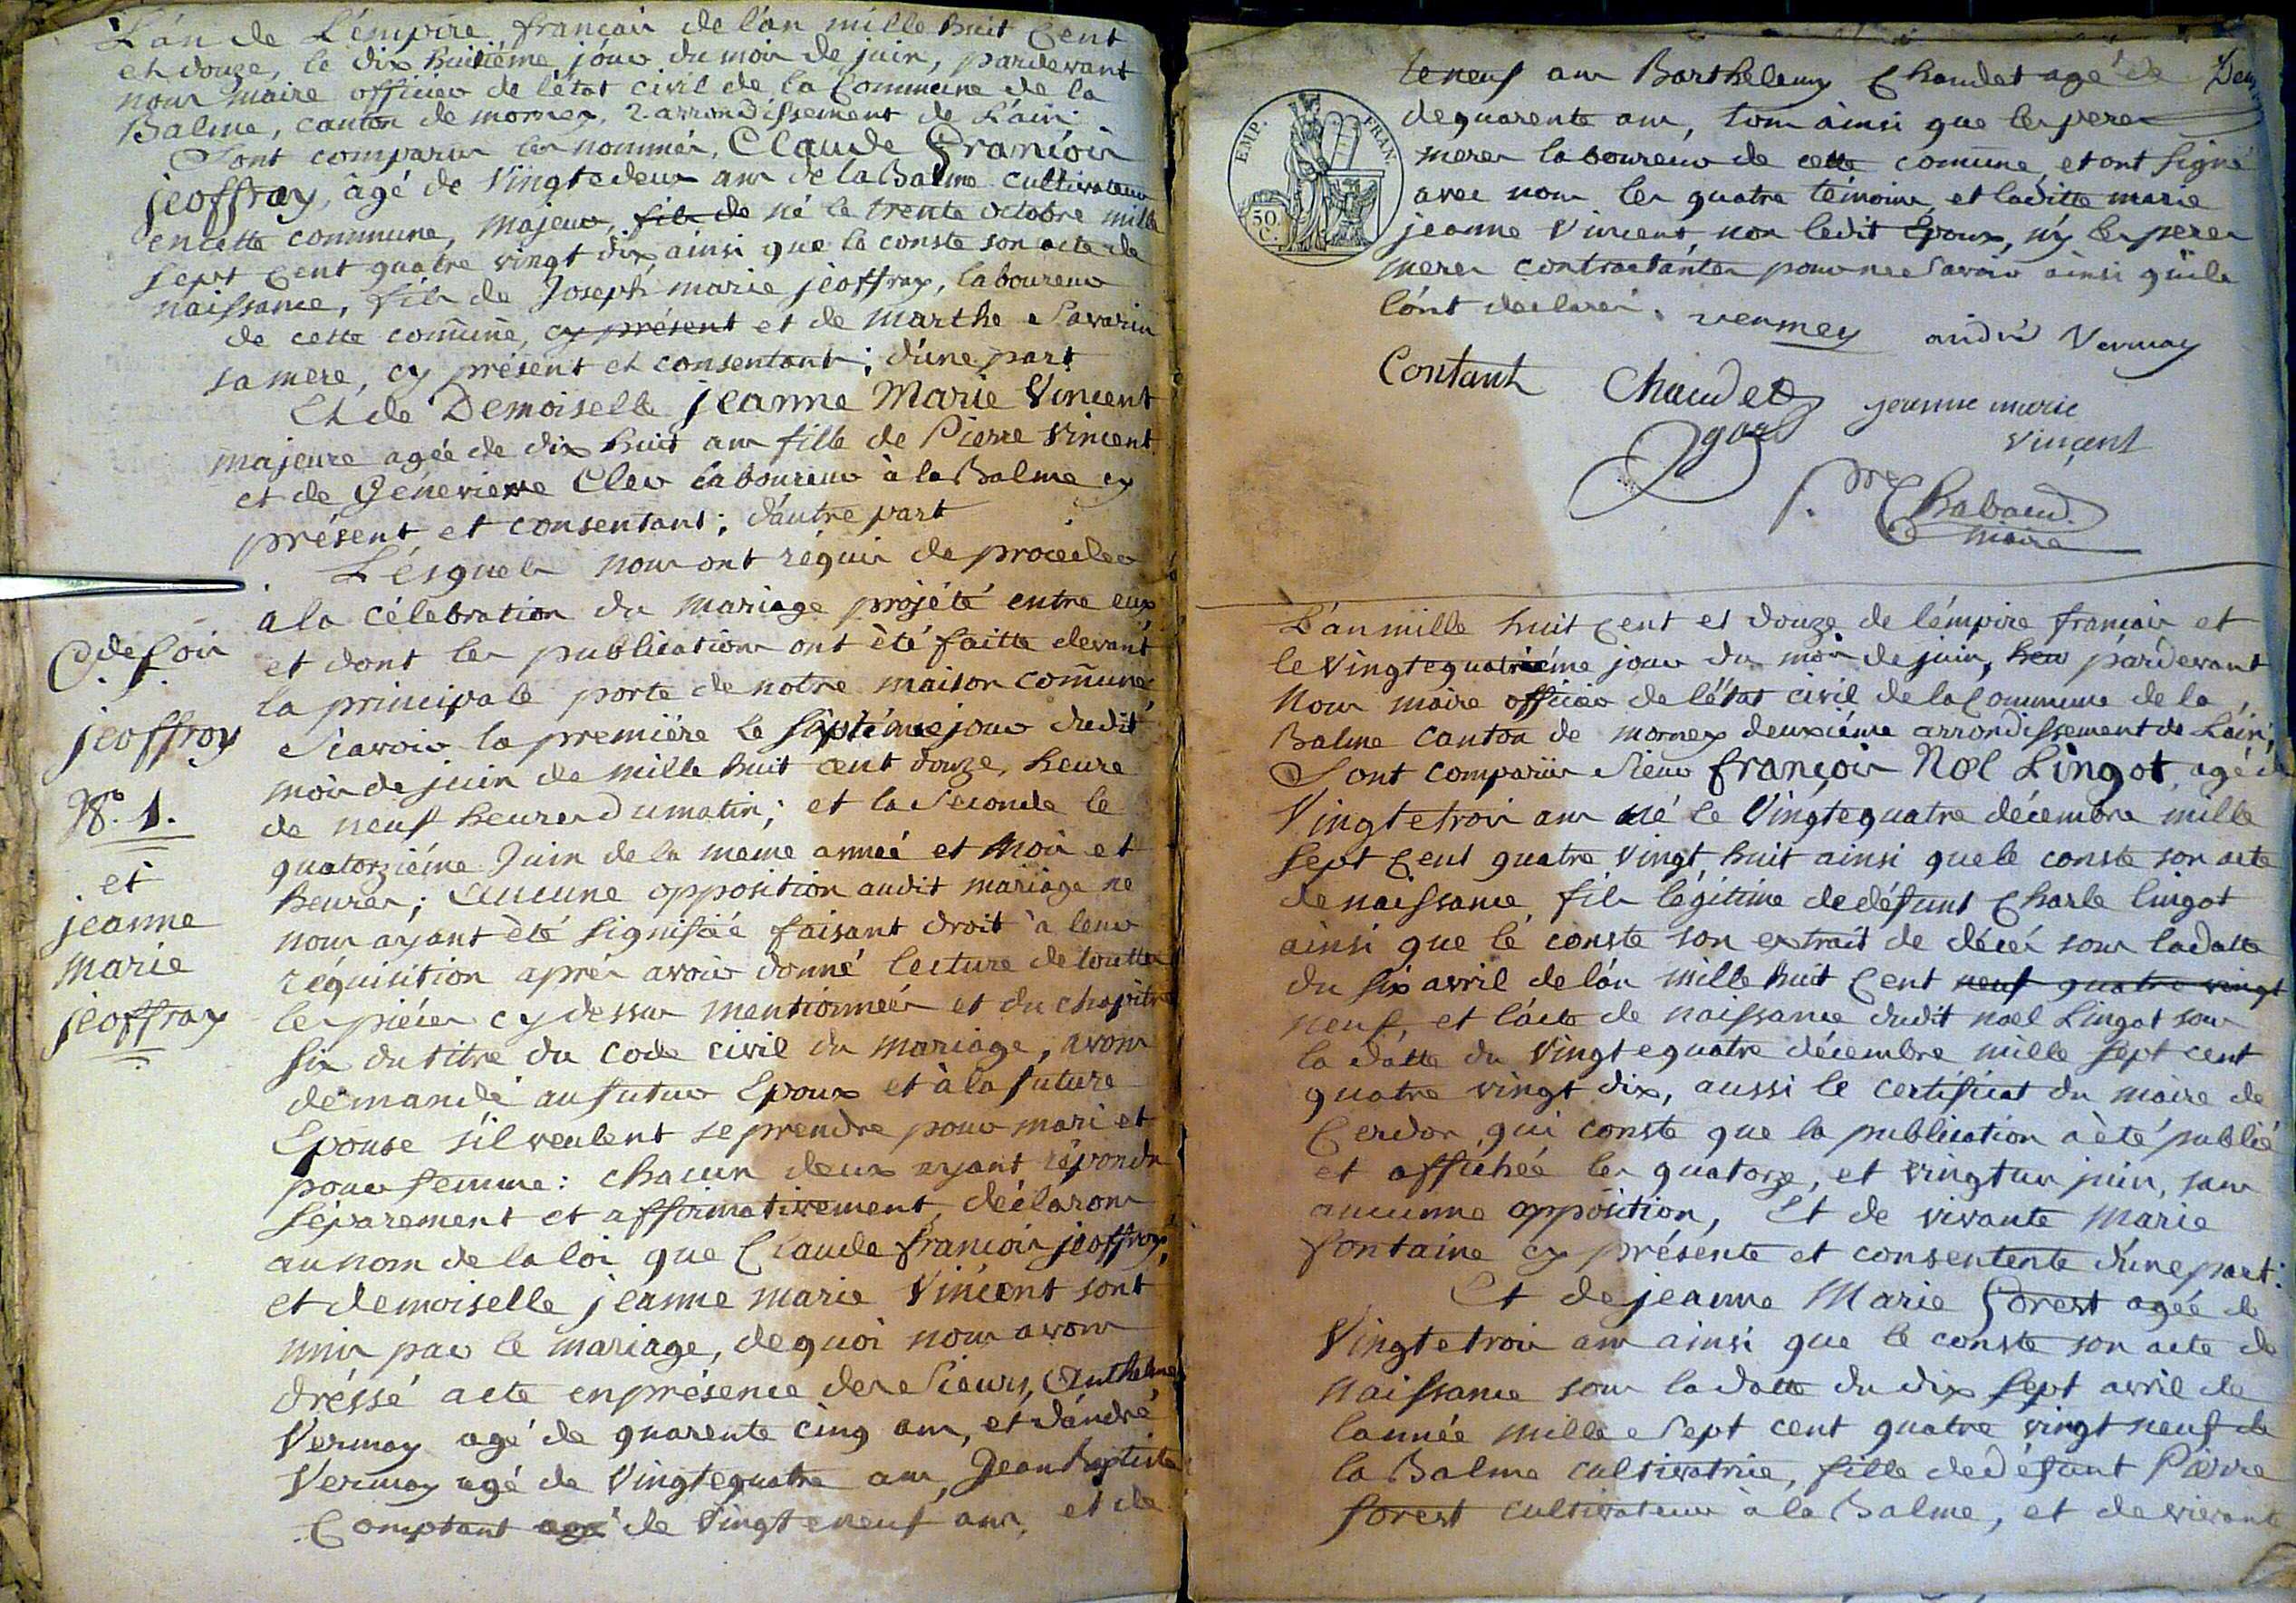 L'an de L'émpire françois de l'an mille huit Cent
et douze, le dix huitiéme jour du mois de juin, pardevant
nous maire officier de l'état civil de la Commune de la
Balme, canton de mornex, 2 arrondissement de L'ain:
Sont comparus les nommés, Claude François
jeoffray, âgé de Vingt e deux ans de la Balme cultivateur
en cette commune, majeur, fils de né le trente octobre mille
sept Cent quatre vingt dix, ainsi que le conste son acte de
naissance, fils de Joseph marie jeoffray, laboureur
de cette comune, cy présent et de marthe Savarin
sa mere, cy présent et consentant; d'une part
Et de Demoiselle jeanne Marie Vincent
majeure agée de dix huit ans fille de Pierre Vincent
et de Génevieve Cler laboureur à la Balme cy
présent et consentant; d'autre part
Lésquels nous ont réquis de proceder
a la célebration du mariage projété entre eux
et dont les publications ont èté faitte devant
la principale porte de notre maison comune
Sçavoir la premiére le septiéme jour dudit
mois de juin de mille huit cent douze, heure
de neuf heures du matin; et la Seconde le
quatorziéme Juin de la meme année et mois et
heures; Aucune opposition audit mariage ne
nous ayant èté signifiée faisant droit à leur
réquisition aprés avoir donné lecture de toutte
les piéces cy dessus mentionnées et du chapitre
six du titre du code civil du mariage, avons
démandé au futur Epoux et à la future
Epouse s'il veulent se prendre pour mari et
pour femme: chacun deux ayant répondu
séparement et affirmativement, déclarons
au nom de la loi que Claude françois jeoffray,
et demoiselle jeanne marie Vincent sont
unis par le mariage, de quoi nous avons
dréssé acte en présence des Sieurs, Anthelme
Vermay agé de quarente cinq ans, et d'andré
Vermay agé de Vingt equatre ans, Jean Baptiste
Comptant agé de Vingt e neuf ans, et de
jeoffroy
N°. 1.
et
jeanne
marie
jeoffray
EMP. FRAN.
50. C.
te neuf ans Barthelemy Chaudet agé de
de quarente ans, tous ainsi que les peres
meres laboureur de cette comune, et ont signé
avec nous les quatre témoins et laditte marie
jeanne Vincent, non ledit Epoux, n'y les peres
meres contractantes pour ne savoir ainsi qu'ils
l'ont declarés. vermey andré Vermay
Contant Chaudet jeanne marie
Vincent
Rabaud
maire
L'an mille huit Cent et douze de l'émpire françois et
le Vingt equatriéme jour du mois de juin, heu pardevant
Nous maire officier de l'état civil de la Commune de la
Balme Canton de mornex deuxiéme arrondissement de L'ain;
Sont comparûs Sieur françois Noël Lingot, agé de
Vingt e trois ans né le Vingt equatre décembre mille
sept Cent quatre vingt huit ainsi que le conste son acte
de naissance, fils légitime de défunt Charle lingot
ainsi que le conste son extrait de décés sous la datte
du six avril de l'an mille huit Cent neuf quatre vingt
neuf, et l'acte de naissance dudit noël Lingot sous
la datte du Vingt equatre décembre mille sept cent
quatre vingt dix, aussi le certificat du maire de
Cerdon, qui conste que la publication a èté publié
et affichée les quatorze, et vingt un juin, sans
aucunne opposition, Et de vivante Marie
fontaine cy présente et consentente d'une part:
Et de jeanne Marie forest agée de
Vingt e trois ans ainsi que le conste son acte de
naissance sous la datte du dix sept avril de
l'année mille Sept cent quatre vingt neuf de
la Balme cultivatrice, fille de défunt Pierre
forest cultivateur à la Balme, et de vivante